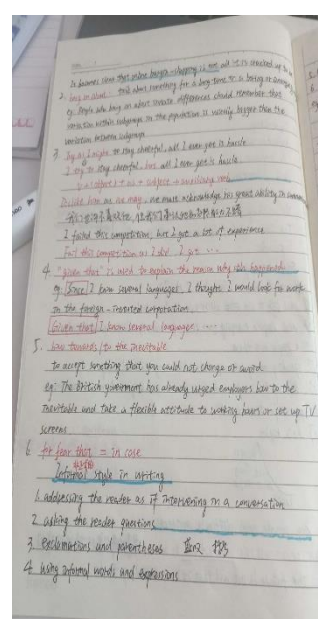 It becomes clear that online bargain-shopping is not all it is cracked up to be
2. bang on about: talk about something for a long time in a boring
eg. People who bang on about innate differences should remember that
variation within subgroups in the population is usually bigger than the
variation between subgroups
3. Try as I might to stay cheerful, all I ever get is hassle
I try to stay cheerful, but all I ever get is hassle
as + subject + auxiliary verb
Dislike him as we may, we must acknowledge his great ability in
I failed this competition, but I got a lot of experience
Fail this competition as I did, I got ...
4. "given that" is used to explain the reason why sth happened
eg. Since I know several languages, I thought I would look for work
in the foreign-invested corporation
Given that I know several languages ....
5. bow towards/to the inevitable
to accept something that you could not change or avoid
eg: The British government has already urged employers bow to the
inevitable and take a flexible attitude to working hours or set up TV
screens
6. for fear that = in case
Informal style in writing
1. addressing the reader as if intervening in a conversation
2. asking the reader questions
3. exclamations and parentheses
4. using informal words and expressions